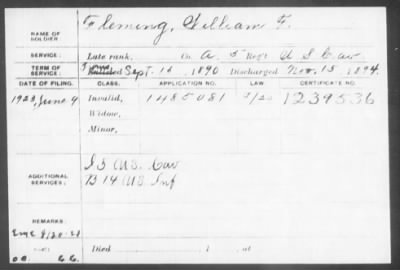 NAME OF SOLDIER: Fleming, William F.
SERVICE: Late rank, Co. A. 5 Reg't U S Cav
TERM OF SERVICE: Enlisted Sept. 16, 1890 Discharged Nov. 15, 1894.
DATE OF FILING. CLASS. APPLICATION NO. LAW CERTIFICATE NO.
1923, June 9 Invalid, 1485081 1239536
Widow,
Minor,
ADDITIONAL SERVICES: U.S. Cav
B 14 U.S. Inf
REMARKS:
Died , 1 , at